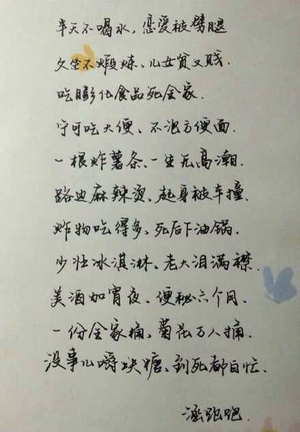 半天不喝水，恋爱被劈腿
久坐不煅炼、儿女贫又贱.
吃膨化食品死全家.
宁可吃大便、不泡方便面.
一根炸薯条、一生无高潮.
路边麻辣烫、起身被车撞.
炸物吃得多、死后下油锅.
少壮冰淇淋、老大泪满襟.
美酒加宵夜、便秘六个月.
一份全家桶、菊花万人捅.
没事儿嚼块糖、到死都白忙.
滚跑吧.